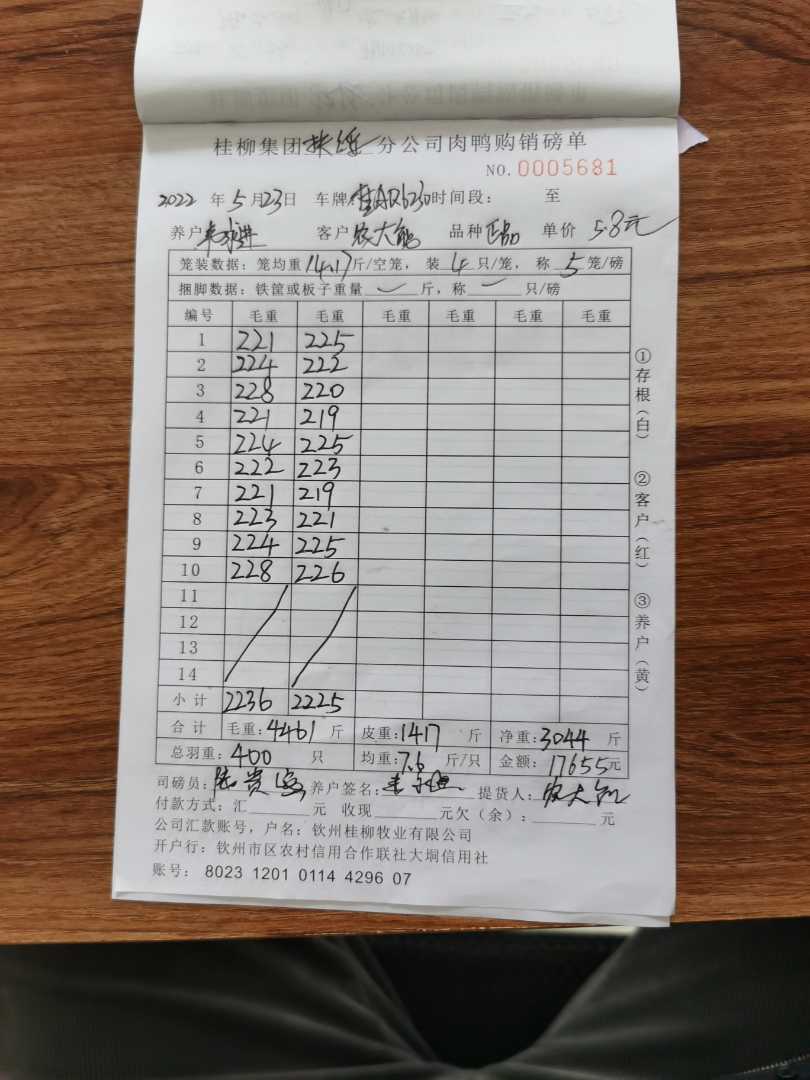 桂柳集团扶绥分公司肉鸭购销磅单
NO. 0005681
2022年5月23日 车牌:桂AR6230时间段: 至
养户 客户农大 品种正品 单价5.8元
笼装数据:笼均重14.17斤/空笼,装4只/笼,称5笼/磅
捆脚数据:铁筐或板子重量 斤,称 只/磅
编号 毛重 毛重 毛重 毛重 毛重 毛重
1 221 225
2 224 222
3 228 220
4 221 219
5 224 225
6 222 223
7 221 219
8 223 221
9 224 225
10 228 226
11
12
13
14
小计 2236 2225
合计 毛重:4461斤 皮重:1417斤 净重:3044斤
总羽重:400只 均重:7.6斤/只 金额:17655元
司磅员: 养户签名: 提货人:农大
付款方式:汇 元 收现 元欠(余): 元
公司汇款账号,户名:钦州桂柳牧业有限公司
开户行:钦州市区农村信用合作联社大垌信用社
账号: 8023 1201 0114 4296 07
①存根(白) ②客户(红) ③养户(黄)